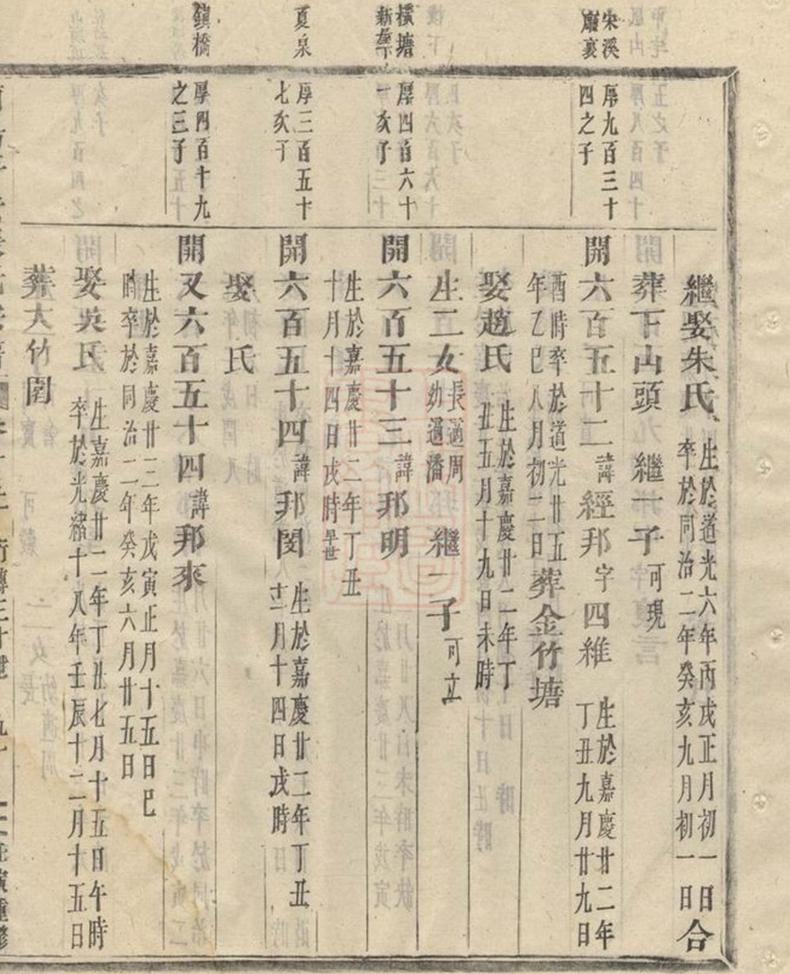 繼娶朱氏 生於道光六年丙戌正月初一日 卒於同治二年癸亥九月初一日 合
葬下山頭 繼一子 可現
宋溪 厚九百三十
四之子
開六百五十二 諱經邦 字四維 生於嘉慶廿二年
丁丑九月廿九日
酉時卒於道光廿五
年乙巳八月初二日 葬金竹塘
娶趙氏 生於嘉慶廿二年丁
丑五月十九日未時
生二女 長適周 幼適潘 繼一子 可立
橫塘 厚四百六十
一亥子
開六百五十三 諱邦明
生於嘉慶廿二年丁丑
十月十四日戌時 早世
夏泉 厚三百五十
七亥子
開六百五十四 諱邦閔 生於嘉慶廿二年丁丑
十二月十四日戌時
娶 氏
鎮橋 厚四百十九
之三子
開又六百五十四 諱邦來
生於嘉慶廿三年戊寅正月十五日巳
時卒於同治二年癸亥六月廿五日
娶吳氏 生嘉慶廿二年丁丑七月十五日午時
卒於光緒十八年壬辰十二月十五日
葬大竹園